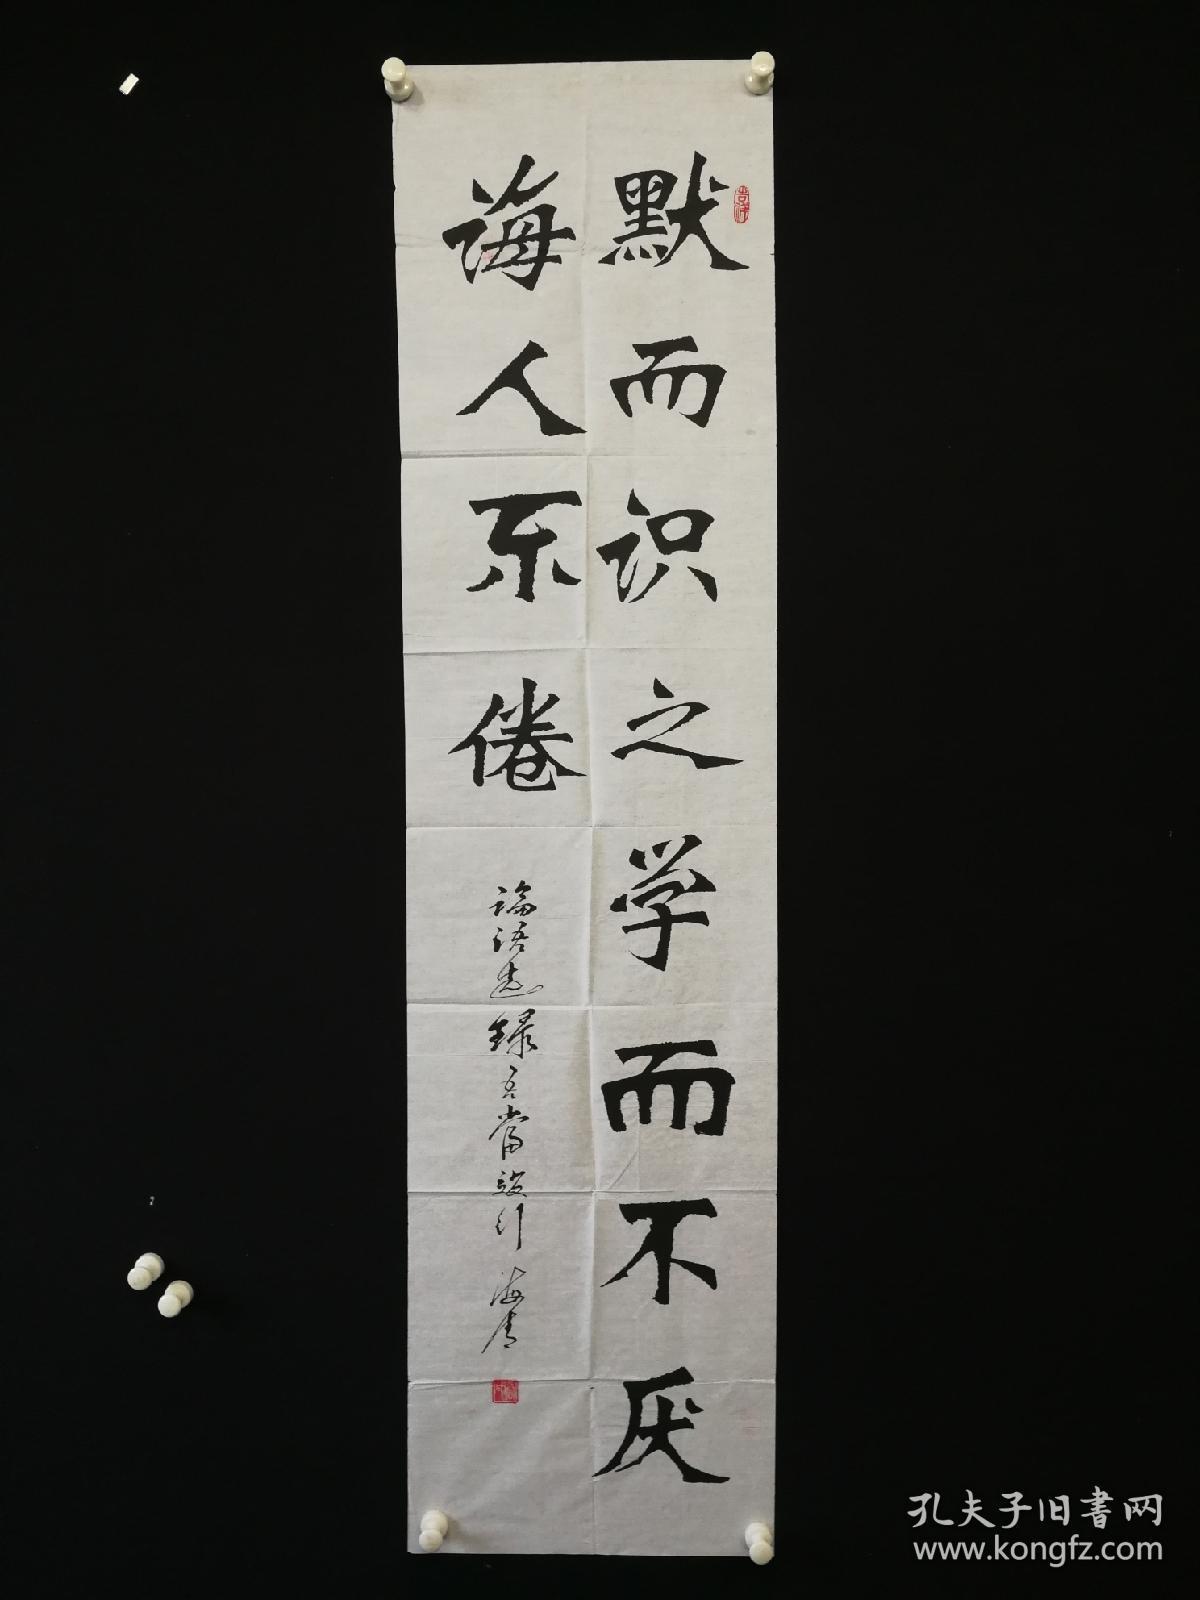 默而识之学而不厌
诲人不倦
論语选录吾当效行 海青
孔夫子旧書网
www.kongfz.com